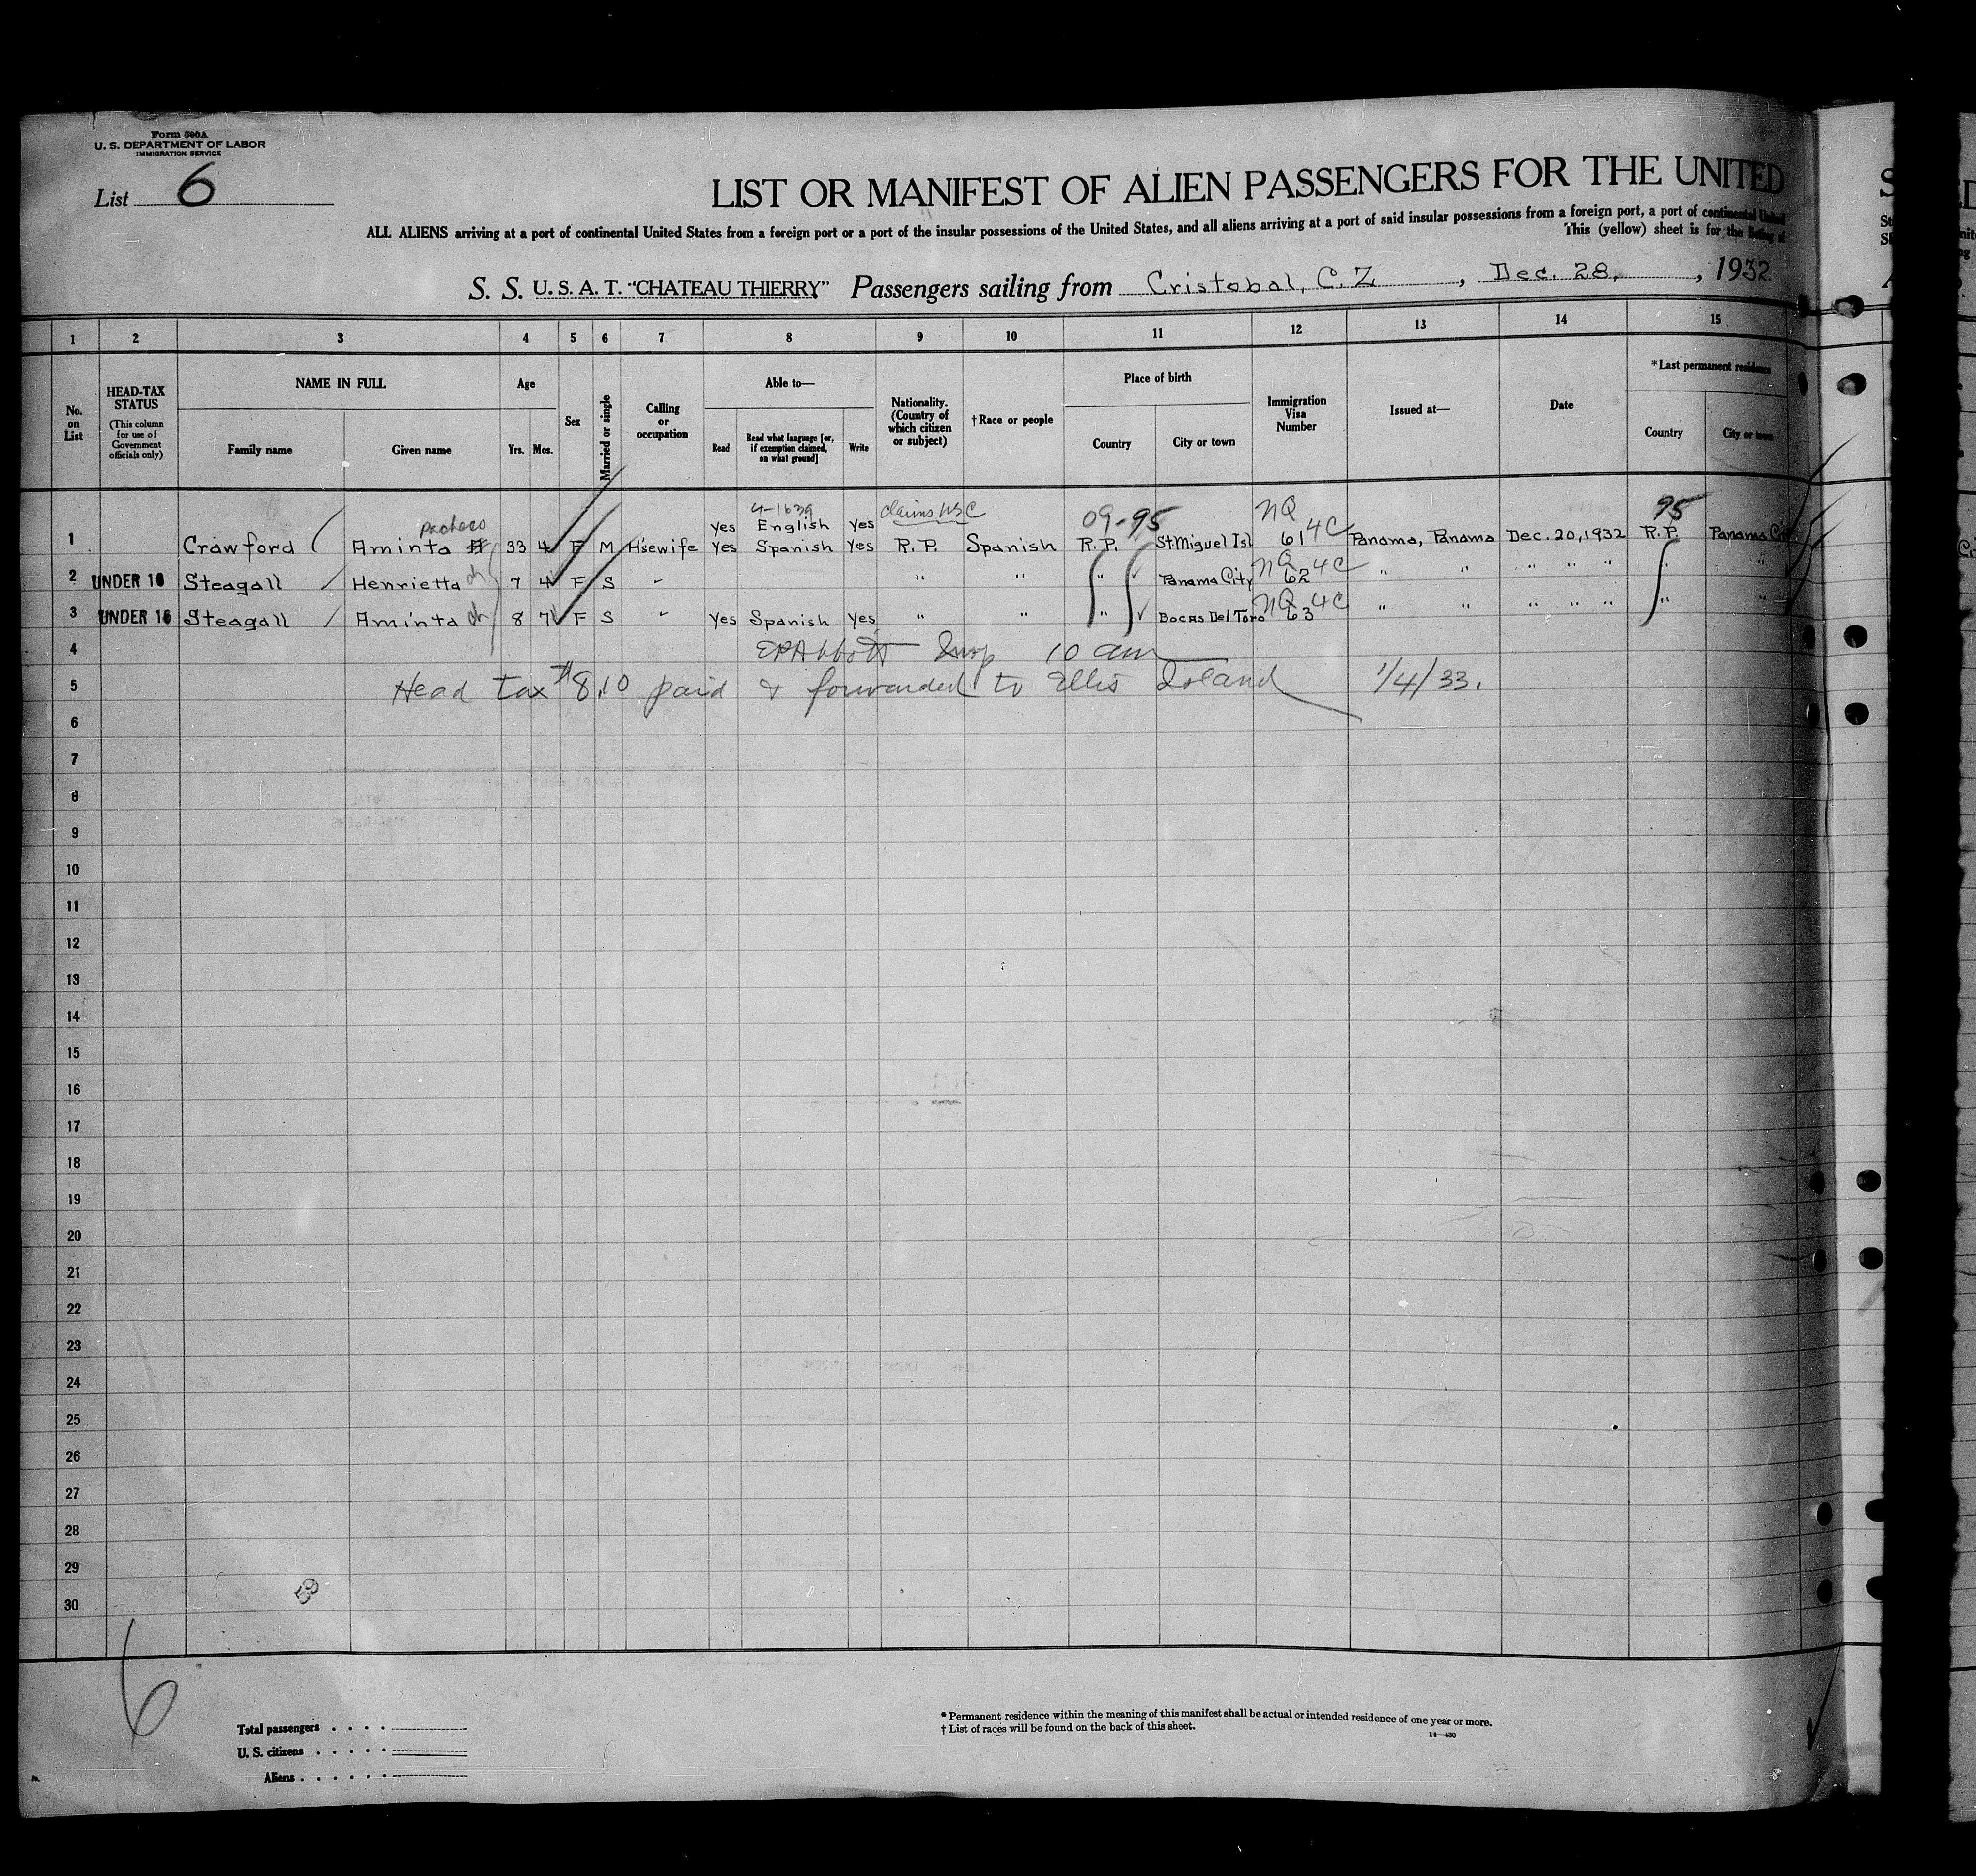 Form 500A
U. S. DEPARTMENT OF LABOR
IMMIGRATION SERVICE
List 6
LIST OR MANIFEST OF ALIEN PASSENGERS FOR THE UNITED
ALL ALIENS arriving at a port of continental United States from a foreign port or a port of the insular possessions of the United States, and all aliens arriving at a port of said insular possessions from a foreign port, a port of continental United
This (yellow) sheet is for the listing of
S. S. U. S. A. T. "CHATEAU THIERRY" Passengers sailing from Cristobal, C. Z , Dec. 28, , 1932
1 2 3 4 5 6 7 8 9 10 11 12 13 14 15
No. on List
HEAD-TAX STATUS
(This column for use of Government officials only)
NAME IN FULL
Family name
Given name
Age
Yrs. Mos.
Sex
Married or single
Calling or occupation
Able to—
Read
Read what language [or, if exemption claimed, on what ground]
Write
Nationality. (Country of which citizen or subject)
†Race or people
Place of birth
Country
City or town
Immigration Visa Number
Issued at—
Date
*Last permanent residence
Country
City or town
4-1639 claims USC 09-95 NQ 95
Pacheco yes English yes
1 Crawford Aminta 33 4 F M H'sewife Yes Spanish Yes R.P. Spanish R.P. St. Miguel Isl 61 4C Panama, Panama Dec. 20, 1932 R.P. Panama City
2 UNDER 16 Steagall Henrietta ch 7 4 F S " " " " Panama City NQ 62 4C " " " " " " "
3 UNDER 16 Steagall Aminta ch 8 7 F S " Yes Spanish Yes " " " Bocas Del Toro NQ 63 4C " " " " " " "
4 EPAbbott Insp 10 am
5 Head tax $8.10 paid & forwarded to Ellis Island 1/4/33.
6
7
8
9
10
11
12
13
14
15
16
17
18
19
20
21
22
23
24
25
26
27
28
29
30
6
Total passengers . . . .
U. S. citizens . . . . .
Aliens . . . . . .
* Permanent residence within the meaning of this manifest shall be actual or intended residence of one year or more.
† List of races will be found on the back of this sheet.
14—430